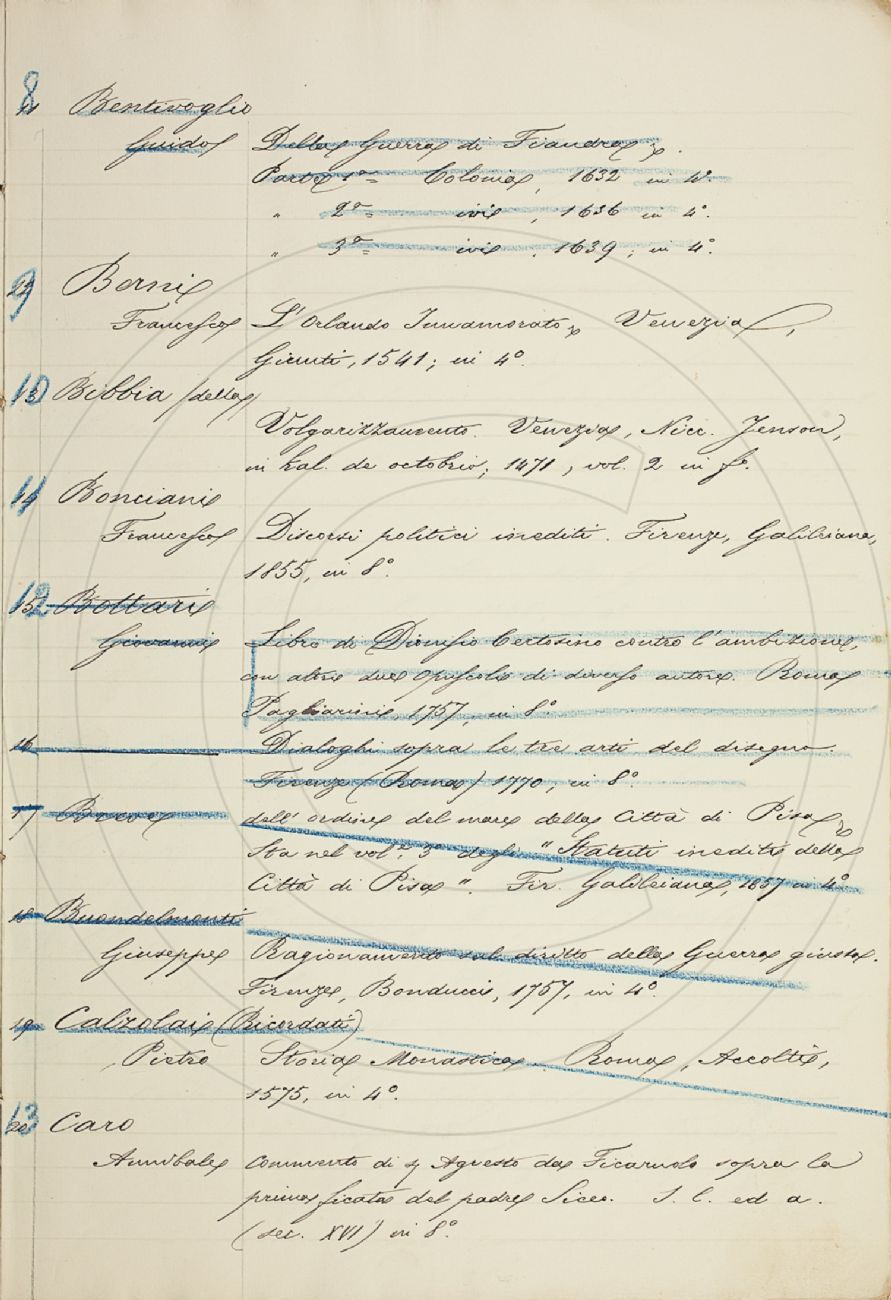 8 Bentivoglio
Guido Della Guerra di Fiandra;
Parte 1ª= Colonia, 1632 in 4º.
" 2ª= ivi, 1636 in 4º.
" 3ª= ivi, 1639; in 4º.
9 Berni
Francesco L'Orlando Innamorato, Venezia,
Giunti, 1541; in 4º.
10 Bibbia (della)
Volgarizzamento. Venezia, Nicc. Jenson,
in kal. de octobrio; 1471, vol. 2 in fº.
11 14 Bonciani
Francesco Discorsi politici inediti. Firenze, Galileiana,
1855, in 8º.
12 15 Bottari
Giovanni Libro di Dionisio Certosino contro l'ambizione,
con altri due opuscoli di diverso autore. Roma
Pagliarini, 1757, in 8º.
16 Dialoghi sopra le tre arti del disegno.
Firenze (Roma) 1770, in 8º.
17 Breve dell'ordine del mare della Città di Pisa
Sta nel vol. 3º degli "Statuti inediti della
Città di Pisa". Fir. Galileiana, 1857 in 4º.
18 Buondelmonti
Giuseppe Ragionamento sul diritto della Guerra giusta.
Firenze, Bonducci, 1757, in 4º.
19 Calzolai (Ricordati)
Pietro Storia Monastica. Roma, Accolti,
1575, in 4º.
13 20 Caro
Annibale Commento di Agresto da Ficaruolo sopra la
prima ficata del padre Siceo. S. l. ed a.
(sec. XVI) in 8º.